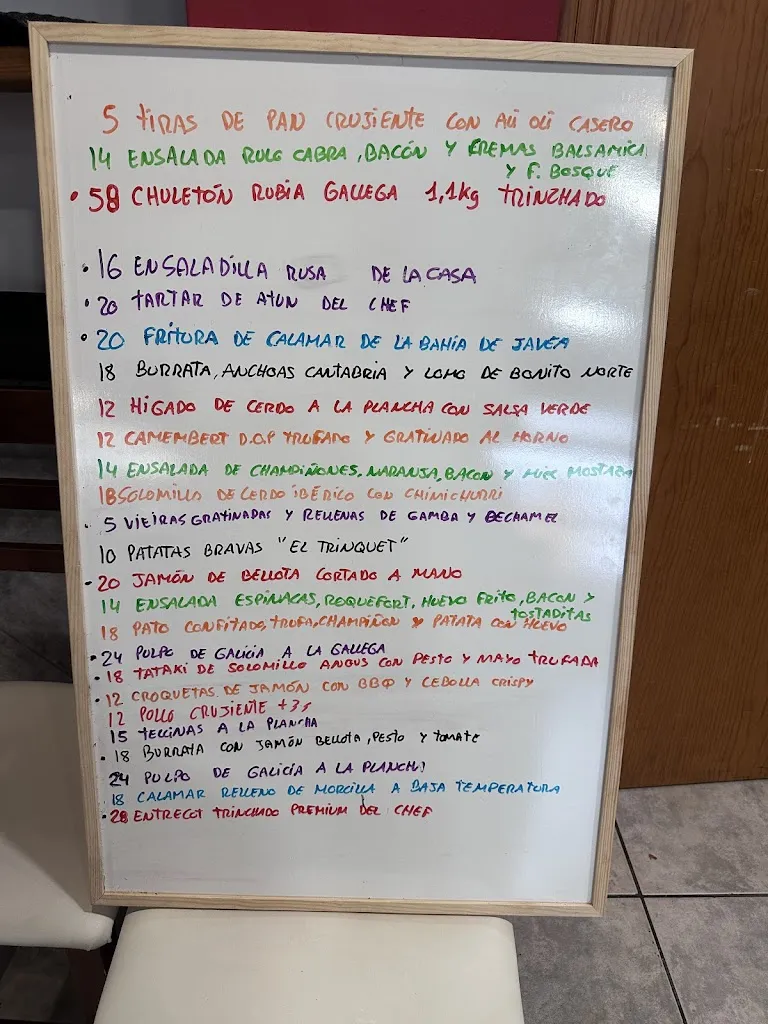 5 TIRAS DE PAN CRUJIENTE CON ALI OLI CASERO
14 ENSALADA RULO CABRA, BACÓN Y CREMAS BALSAMICA
Y F. BOSQUE
• 58 CHULETÓN RUBIA GALLEGA 1,1Kg TRINZHADO
• 16 ENSALADILLA RUSA DE LA CASA
• 20 TARTAR DE ATUN DEL CHEF
• 20 FRITURA DE CALAMAR DE LA BAHIA DE JAVEA
18 BURRATA, ANCHOAS CANTABRIA Y LOMO DE BONITO NORTE
12 HIGADO DE CERDO A LA PLANCHA CON SALSA VERDE
12 CAMEMBERT D.O.P TRUFADO Y GRATINADO AL HORNO
14 ENSALADA DE CHAMPIÑONES, NARANJA, BACON Y MIEL MOSTAZA
18 SOLOMILLO DE CERDO IBÉRICO CON CHIMICHURRI
• 5 VIEIRAS GRATINADAS Y RELLENAS DE GAMBA Y BECHAMEL
10 PATATAS BRAVAS "EL TRINQUET"
• 20 JAMÓN DE BELLOTA CORTADO A MANO
14 ENSALADA ESPINACAS, ROQUEFORT, HUEVO FRITO, BACON Y
TOSTADITAS
18 PATO CONFITADO, TRUFA, CHAMPIÑON Y PATATA CON HUEVO
• 24 PULPO DE GALICIA A LA GALLEGA
• 18 TATAKI DE SOLOMILLO ANGUS CON PESTO Y MAYO TRUFADA
• 12 CROQUETAS DE JAMÓN CON BBQ Y CEBOLLA CRISPY
12 POLLO CRUJIENTE +3
15 TELLINAS A LA PLANCHA
• 18 BURRATA CON JAMÓN BELLOTA, PESTO Y TOMATE
24 PULPO DE GALICIA A LA PLANCHA
18 CALAMAR RELLENO DE MORCILLA A BAJA TEMPERATURA
• 28 ENTRECOT TRINCHADO PREMIUM DEL CHEF